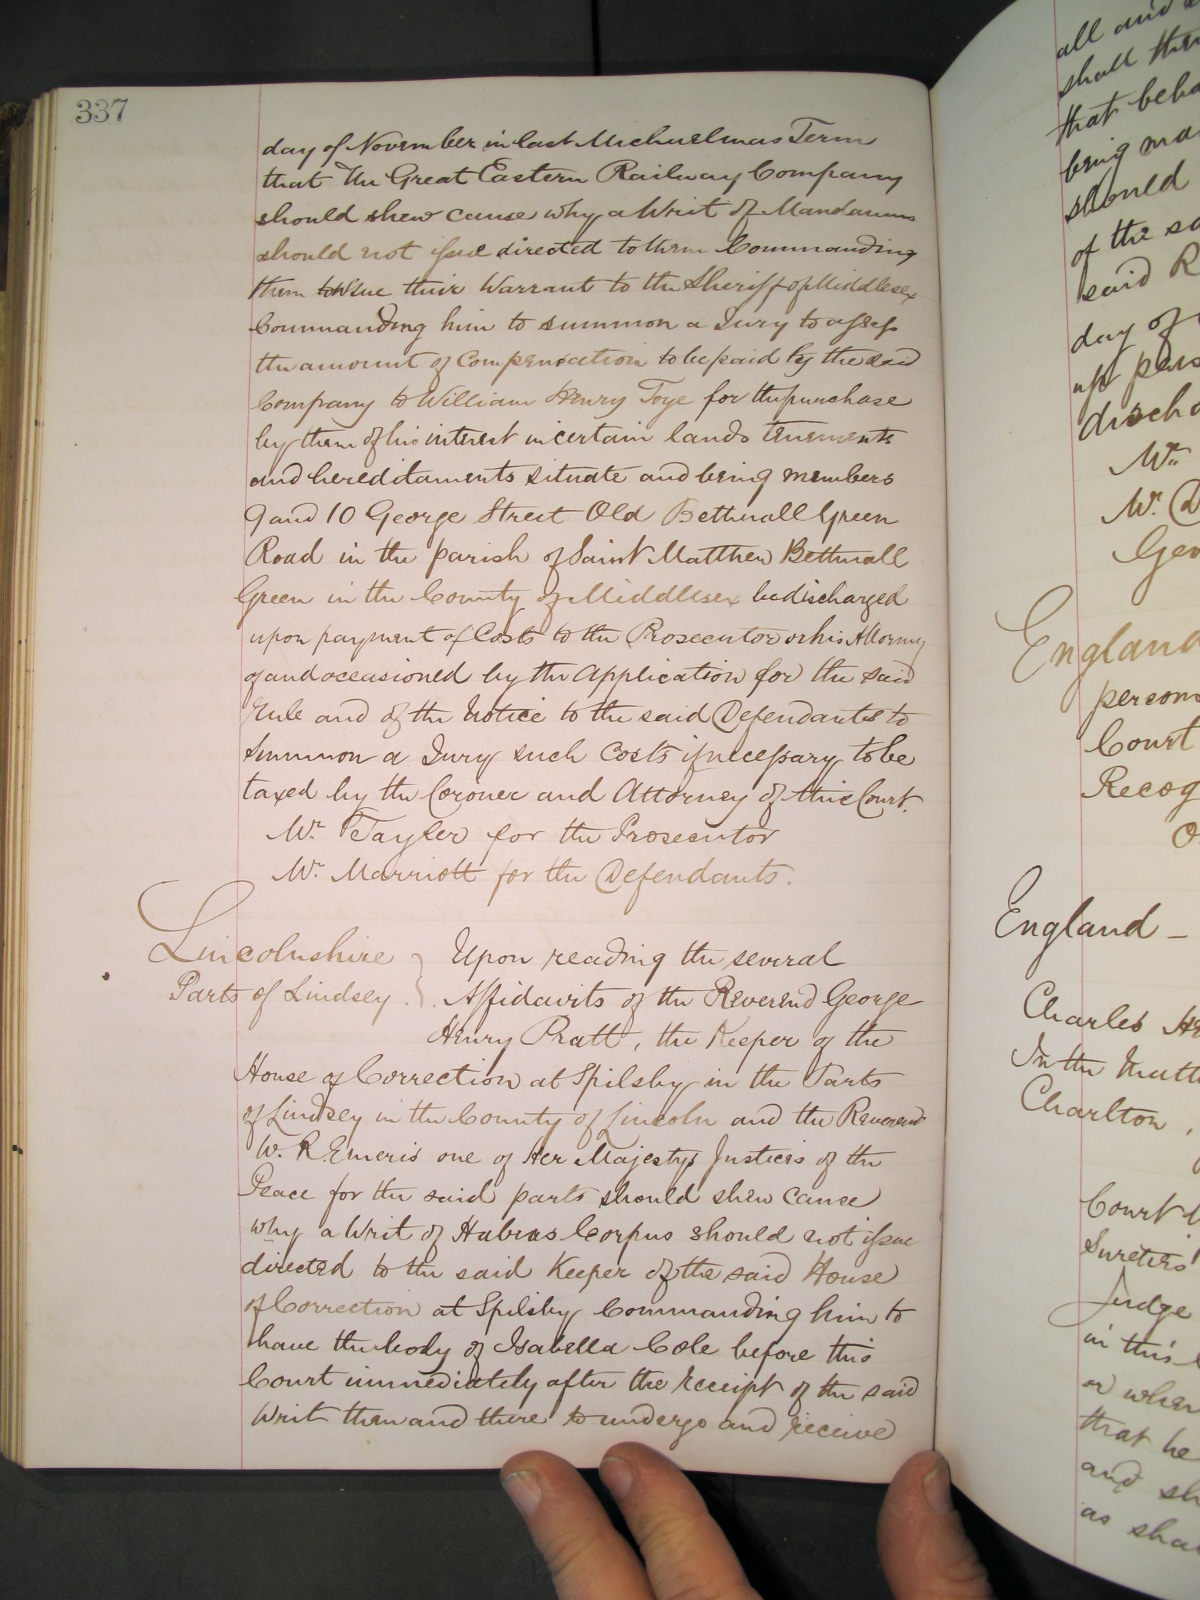 337
day of November in last Michaelmas Term
that The Great Eastern Railway Company
should shew cause why a Writ of Mandamus
should not issue directed to them Commanding
them to issue their Warrant to the Sheriff of Middlesex
Commanding him to summon a Jury to assess
the amount of Compensation to be paid by the said
Company to William Henry Toye for the purchase
by them of his interest in certain lands tenements
and hereditaments situate and being members
9 and 10 George Street Old Bethnall Green
Road in the parish of Saint Matthew Bethnall
Green in the County of Middlesex be discharged
upon payment of Costs to the Prosecutor or his Attorney
of and occasioned by the Application for the said
Rule and of the Notice to the said Defendants to
Summon a Jury such Costs if necessary to be
taxed by the Coroner and Attorney of this Court.
Mr. Tayler for the Prosecutor
Mr. Marriott for the Defendants.
Lincolnshire } Upon reading the several
Parts of Lindsey. } Affidavits of the Reverend George
Henry Pratt, the Keeper of the
House of Correction at Spilsby in the Parts
of Lindsey in the County of Lincoln and the Reverend
W. R. Emeris one of Her Majestys Justices of the
Peace for the said parts should shew Cause
why a Writ of Habeas Corpus should not issue
directed to the said Keeper of the said House
of Correction at Spilsby Commanding him to
have the body of Isabella Cole before this
Court immediately after the receipt of the said
Writ then and there to undergo and receive
all and
shall
that beha
being ma
should
of the sa
said R
day of
pers
discha
Mr.
Mr. D
Geo
England
person
Court
Recog
England –
Charles He
In the Matt
Charlton,
Court
Sureties
Judge
in this
or when
that he
and sh
as shal